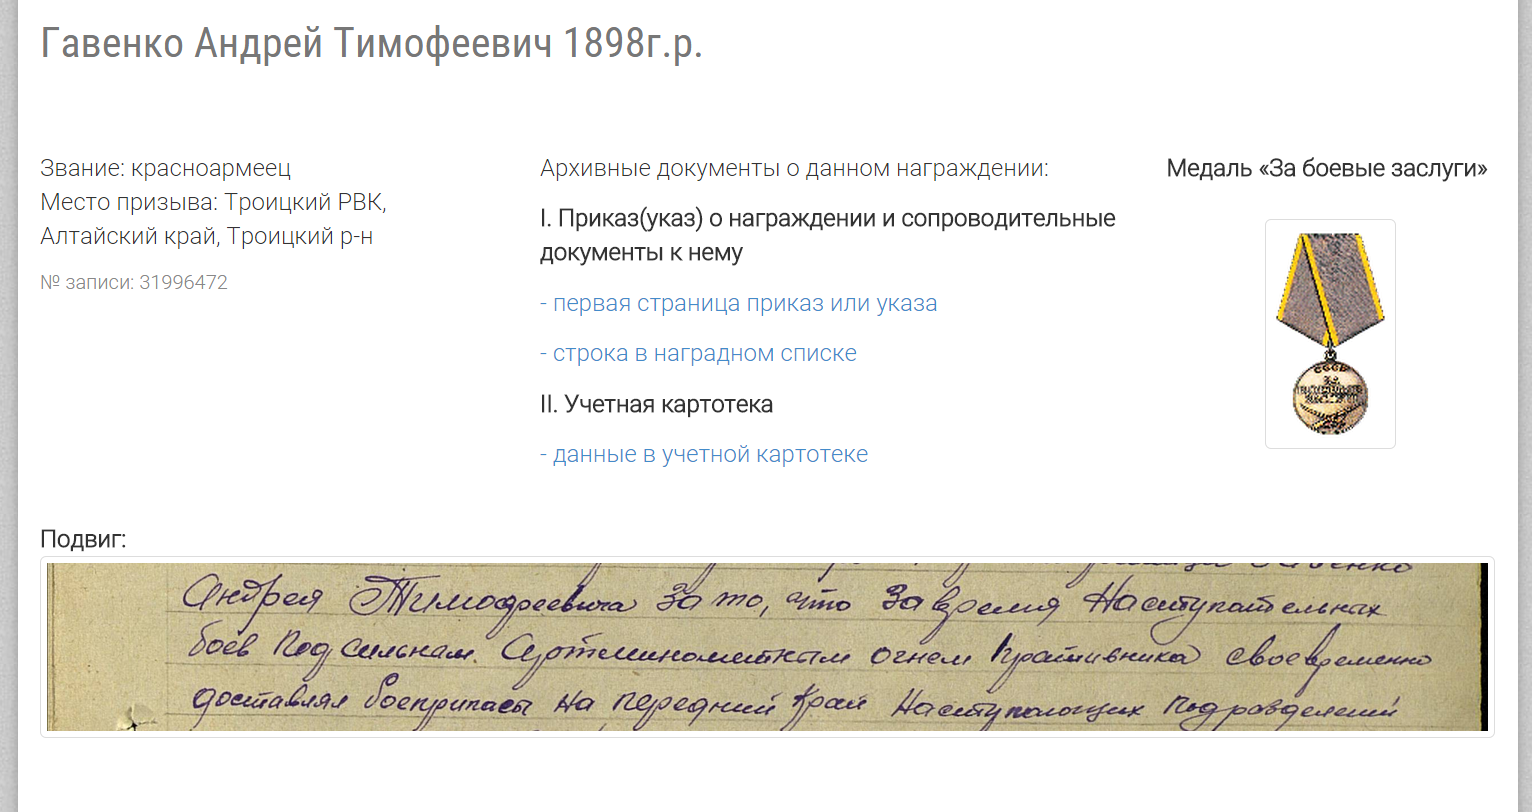 Гавенко Андрей Тимофеевич 1898г.р.
Звание: красноармеец
Место призыва: Троицкий РВК,
Алтайский край, Троицкий р-н
№ записи: 31996472
Архивные документы о данном награждении:
I. Приказ(указ) о награждении и сопроводительные
документы к нему
- первая страница приказ или указа
- строка в наградном списке
II. Учетная картотека
- данные в учетной картотеке
Медаль «За боевые заслуги»
СССР
Подвиг:
Гавенко
Андрея Тимофеевича За то, что За время Наступательных
боев Под сильным Артминометным огнем Противника своевременно
доставлял боеприпасы на передний Край Наступающих Подразделений